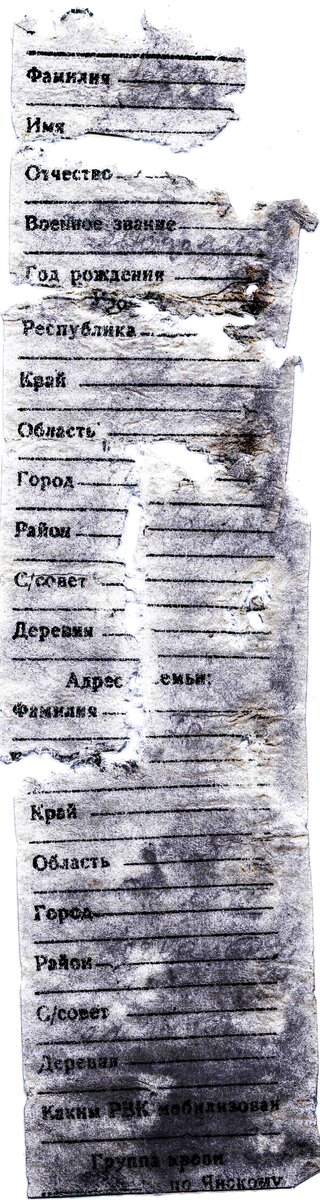 Фамилия
Имя
Отчество
Военное звание
Год рождения
Республика
Край
Область
Город
Район
С/совет
Деревня
Адрес емьи:
Фамилия
Край
Область
Город
Район
С/совет
Деревня
Каким РВК мобилизован
Группа крови
по Янскому